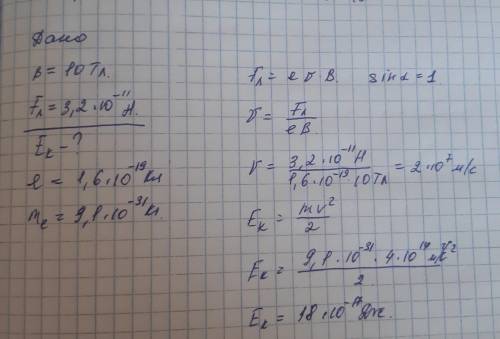 Дано
B = 10 Тл.
Fл = 3,2·10⁻¹¹ Н.
Eк - ?
e = 1,6·10⁻¹⁹ Кл
me = 9,1·10⁻³¹ кг.
Fл = e v B. sin α = 1.
v = Fл / eB
v = 3,2·10⁻¹¹ Н / 1,6·10⁻¹⁹ 10 Тл = 2·10⁷ м/с
Eк = mv² / 2
Eк = 9,1·10⁻³¹ · 4·10¹⁴ м/с² / 2
Eк = 18·10⁻¹⁷ Дж.